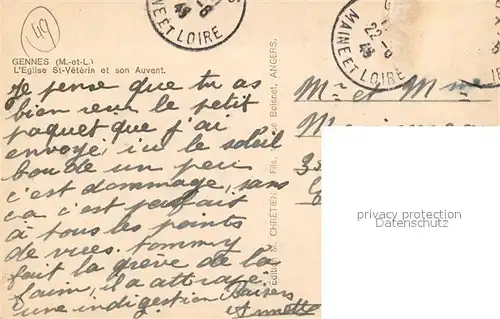 49
MAINE ET LOIRE
22-8
MAINE ET LOIRE
GENNES (M.-et-L.)
L'Eglise St-Vétérin et son Auvent.
Je pense que tu as
bien reçu le petit
paquet que j'ai
envoyé, ici le soleil
boude un peu
c'est dommage, sans
ça c'est parfait
à tous les points
de vues. Tommy
fait la grève de la
faim, il a attrapé
une indigestion Baisers
Annette
Edition M. CHRÉTIEN Fils, Boisnet, ANGERS.
Mr et Mme
privacy protection
www.oldthing.de